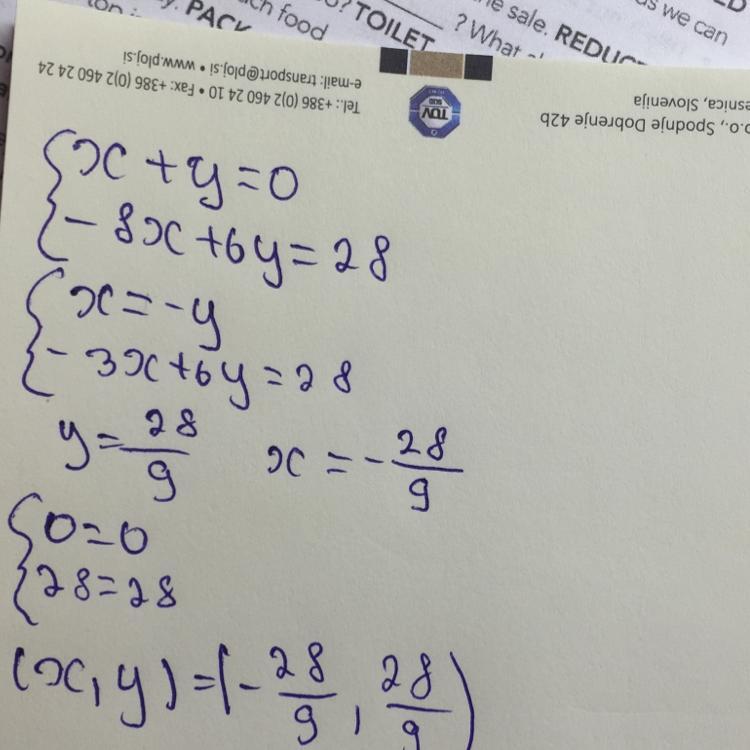 PACK
ch food
? TOILET
? What
ne sale. REDUC
as we can
ED
Tel.: +386 (0)2 460 24 10 • Fax: +386 (0)2 460 24 24
e-mail: transport@ploj.si • www.ploj.si
TÜV
SÜD
o.o., Spodnje Dobrenje 42b
esnica, Slovenija
{ x + y = 0
{ - 8x + 6y = 28
{ x = -y
{ - 3x + 6y = 28
y = 28/9 x = - 28/9
{ 0 = 0
{ 28 = 28
(x, y) = (- 28/9, 28/9)